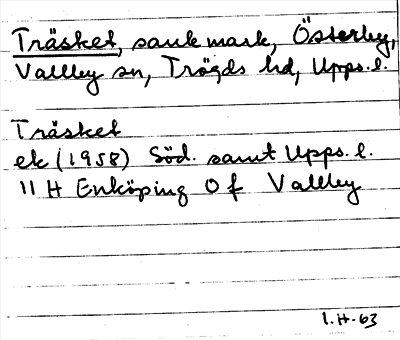 Träsket, sank mark, Österby,
Vallby sn, Trögds hd, Upps. l.
Träsket
ek (1958) Söd. samt Upps. l.
11 H Enköping 0 f Vallby
I.H-63